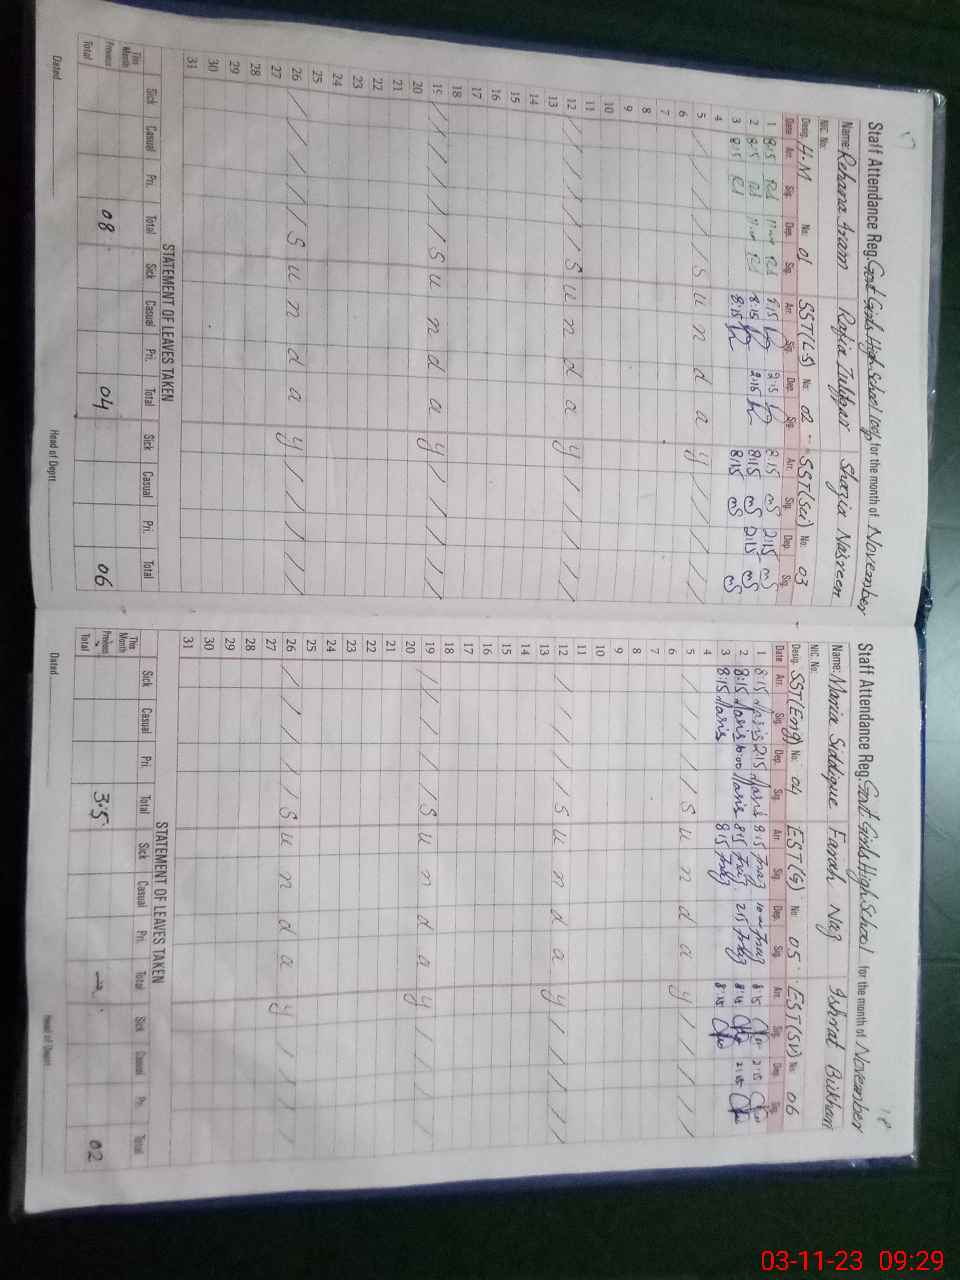 Staff Attendance Reg. Govt Girls High School for the month of November
Name: Rehana Azam Rafia Zulfqar Shazia Nasreen
NIC. No:
Desig. H.M No: 01 SST(LS) No: 02 SST(Sci) No: 03
Date Arr. Sig. Dep. Sig. Arr. Sig. Dep. Sig. Arr. Sig. Dep. Sig.
1 8:15 8:15 2:15 8:15 2:15
2 8:15 8:15 2:15 8:15 2:15
3 8:15 8:15 8:15
4
5 Sunday
6
7
8
9
10
11
12 Sunday
13
14
15
16
17
18
19 Sunday
20
21
22
23
24
25
26 Sunday
27
28
29
30
31
STATEMENT OF LEAVES TAKEN
Sick Casual Pri. Total Sick Casual Pri. Total Sick Casual Pri. Total
This Month
Previous 08 04 06
Total
Dated Head of Deptt
18
Staff Attendance Reg. Govt Girls High School for the month of November
Name: Maria Siddique Farah Naz Ishrat Bukhari
NIC. No:
Desig. SST(Eng) No: 04 EST(G) No: 05 EST(SV) No: 06
Date Arr. Sig. Dep. Sig. Arr. Sig. Dep. Sig. Arr. Sig. Dep. Sig.
1 8:15 2:15 8:15 8:15 2:15
2 8:15 8:15 2:15 8:15 2:15
3 8:15 8:15 8:15
4
5 Sunday
6
7
8
9
10
11
12 Sunday
13
14
15
16
17
18
19 Sunday
20
21
22
23
24
25
26 Sunday
27
28
29
30
31
STATEMENT OF LEAVES TAKEN
Sick Casual Pri. Total Sick Casual Pri. Total Sick Casual Pri. Total
This Month
Previous 3.5 02
Total
Dated Head of Deptt
03-11-23 09:29